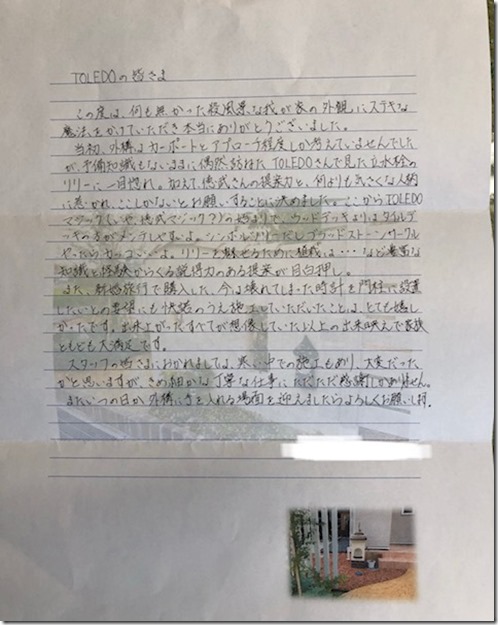 TOLEDOの皆さま
この度は、何も無かった殺風景な我が家の外観にステキな
魔法をかけていただき本当にありがとうございました。
当初、外構はカーポートとアプローチ程度しか考えていませんでした
が、予備知識もないままに偶然訪ねた TOLEDOさんで見た立水栓の
リリーに一目惚れ。加えて、徳武さんの提案力と、何よりも気さくな人柄
に惹かれ、ここしかないとお願いすることに決めました。ここからTOLEDO
マジック(いや、徳武マジック?)の始まりで、ウッドデッキよりはタイルデ
ッキの方がメンテしやすいよ。シンボルツリーだしブラッドストーンサークル
やったらカッコいーよ。リリーを魅せるために植栽は・・・など豊富な
知識と経験からくる説得力のある提案が目白押し。
また、新婚旅行で購入した、今は壊れてしまった時計を門柱に設置
したいとの要望にも快諾のうえ施工していただいたことは、とても嬉し
かったです。出来上がったすべてが想像していた以上の出来映えで家族
ともども大満足です。
スタッフの皆さまにおかれましては、寒い中での施工もあり、大変だった
かと思いますが、きめ細かな丁寧な仕事にただただ感謝しかありません。
またいつの日か外構に手を入れる場面を迎えましたらよろしくお願いします。